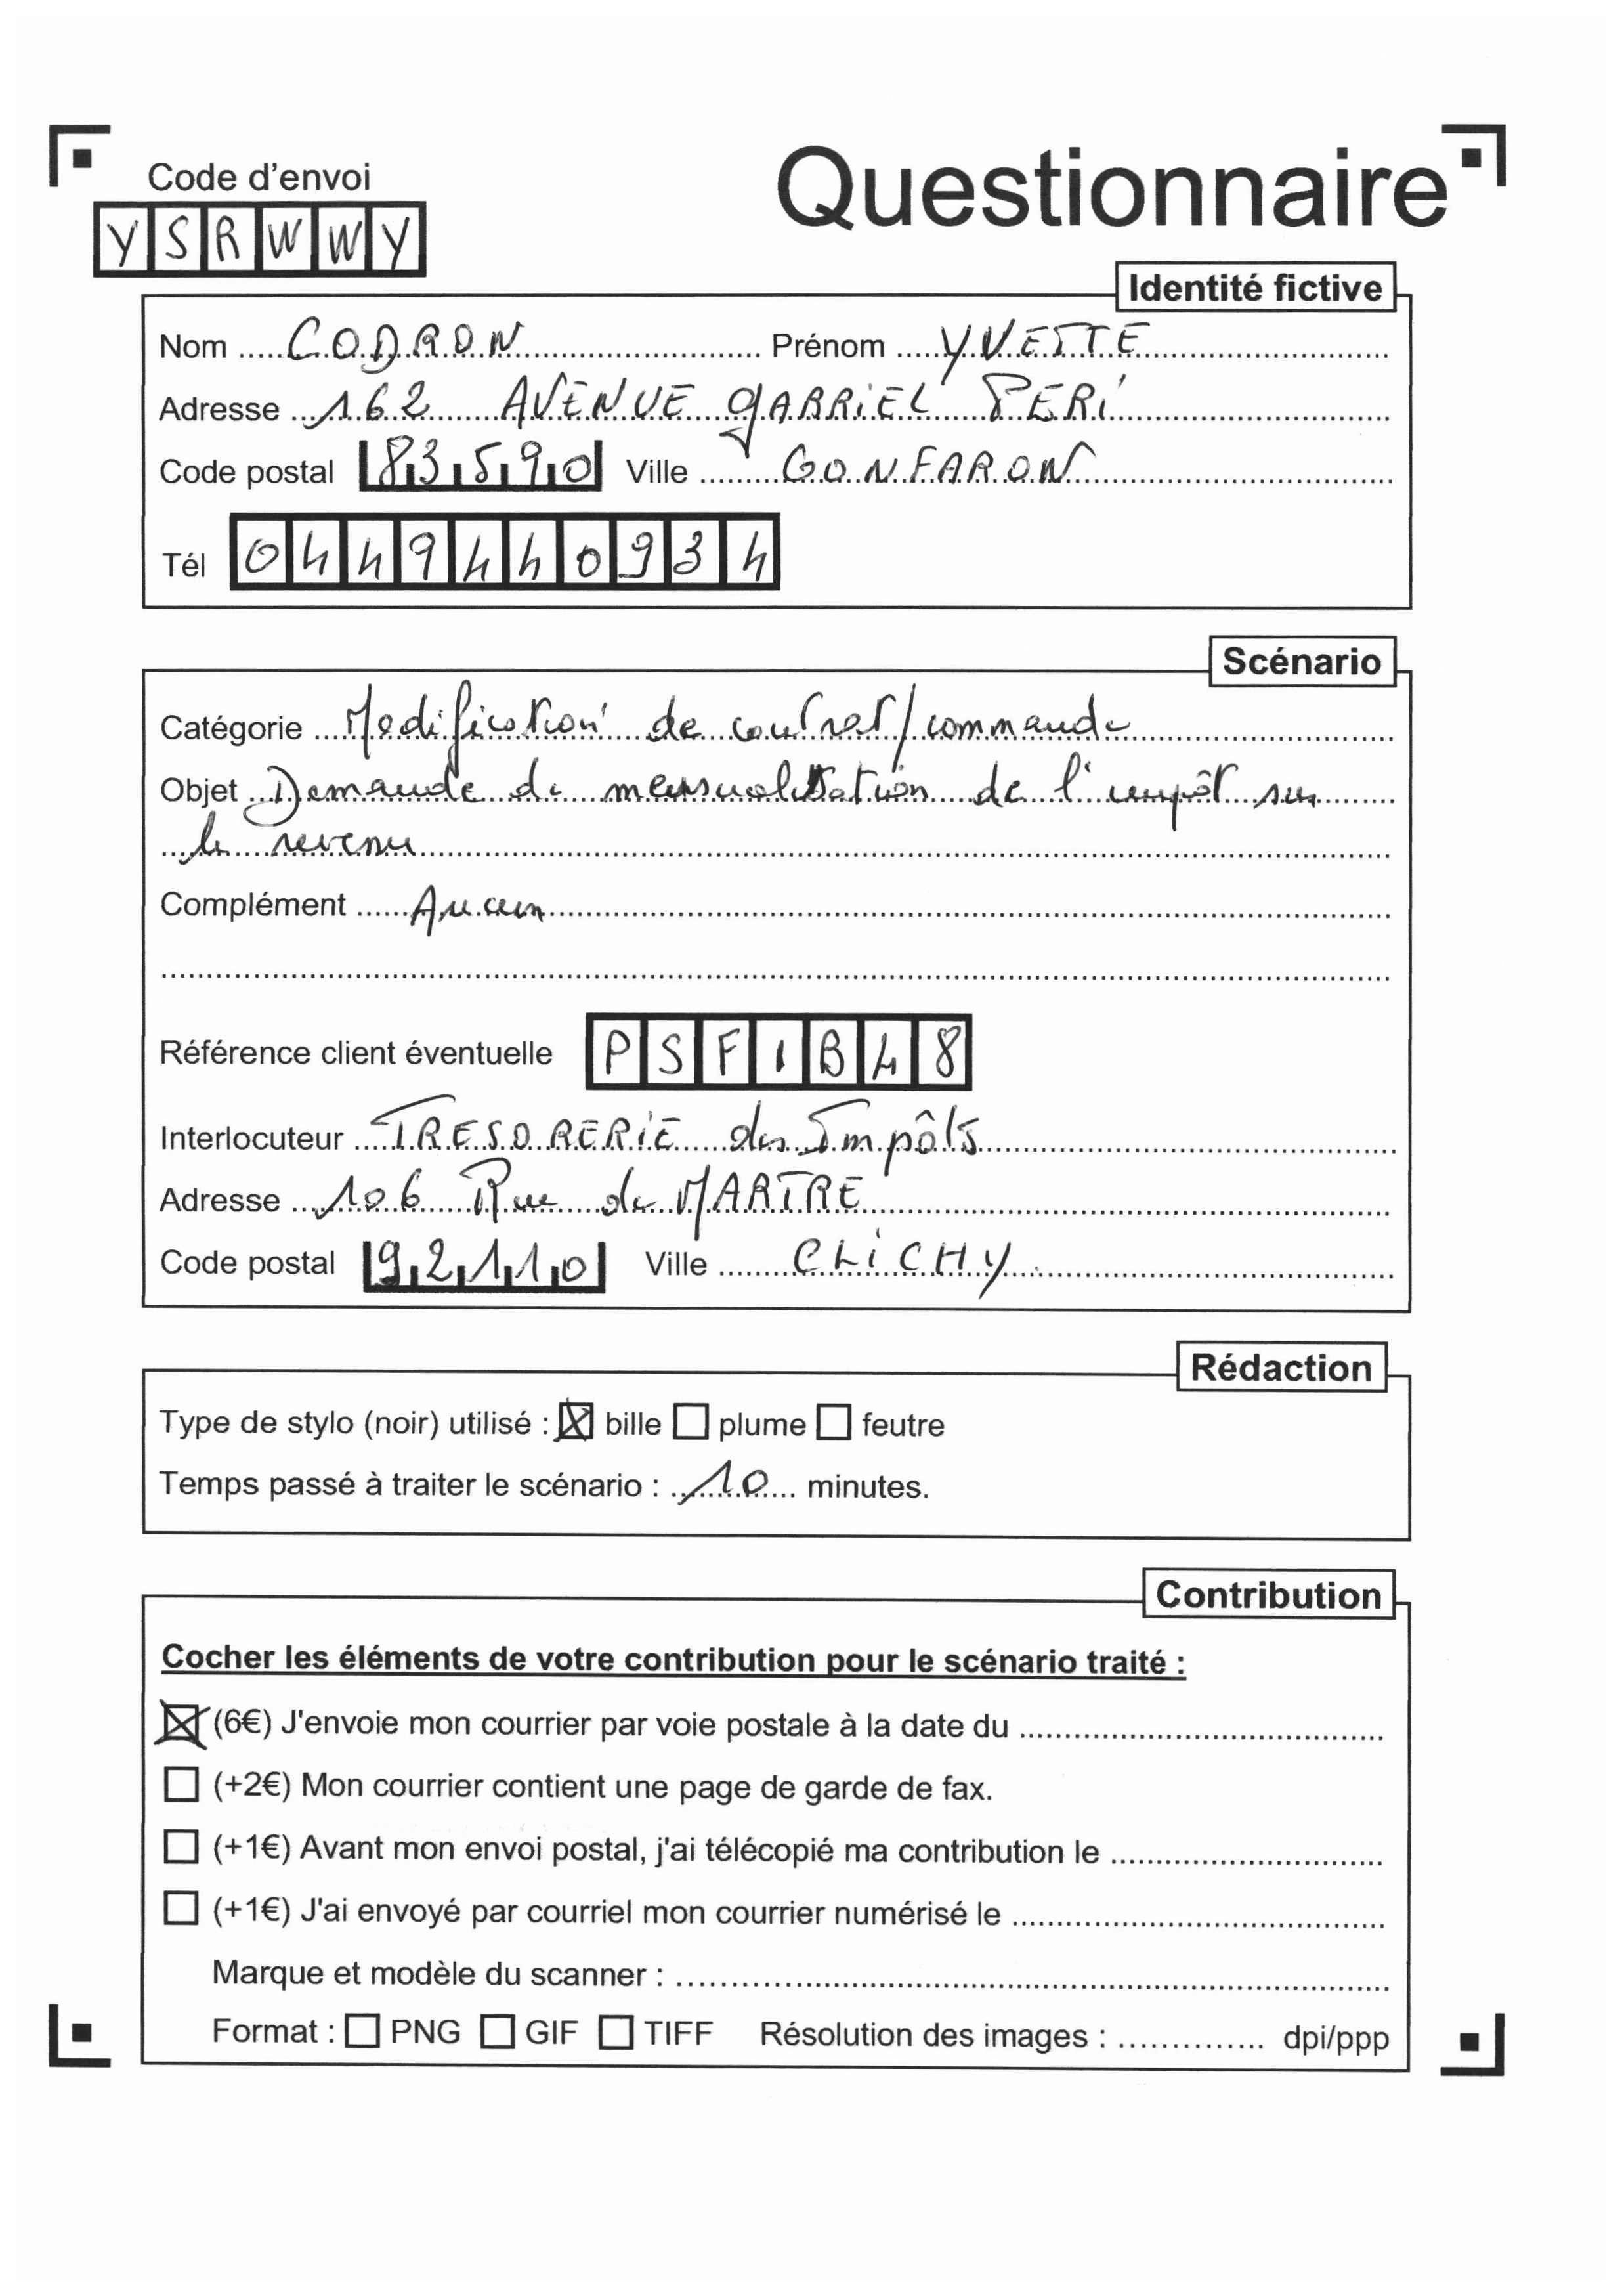 Code d'envoi
YSRWWY
Questionnaire
Identité fictive
Nom CODRON Prénom YVETTE
Adresse 162 AVENUE GABRIEL PERI
Code postal 83590 Ville GONFARON
Tél 0449440934
Scénario
Catégorie Modification de contrat/commande
Objet Demande de mensualisation de l'impôt sur
le revenu
Complément Aucun
Référence client éventuelle PSFIB48
Interlocuteur TRESORERIE des Impôts
Adresse 106 Rue de MARTRE
Code postal 92110 Ville CLICHY
Rédaction
Type de stylo (noir) utilisé : bille plume feutre
Temps passé à traiter le scénario : 10 minutes.
Contribution
Cocher les éléments de votre contribution pour le scénario traité :
(6€) J'envoie mon courrier par voie postale à la date du
(+2€) Mon courrier contient une page de garde de fax.
(+1€) Avant mon envoi postal, j'ai télécopié ma contribution le
(+1€) J'ai envoyé par courriel mon courrier numérisé le
Marque et modèle du scanner :
Format : PNG GIF TIFF Résolution des images : dpi/ppp